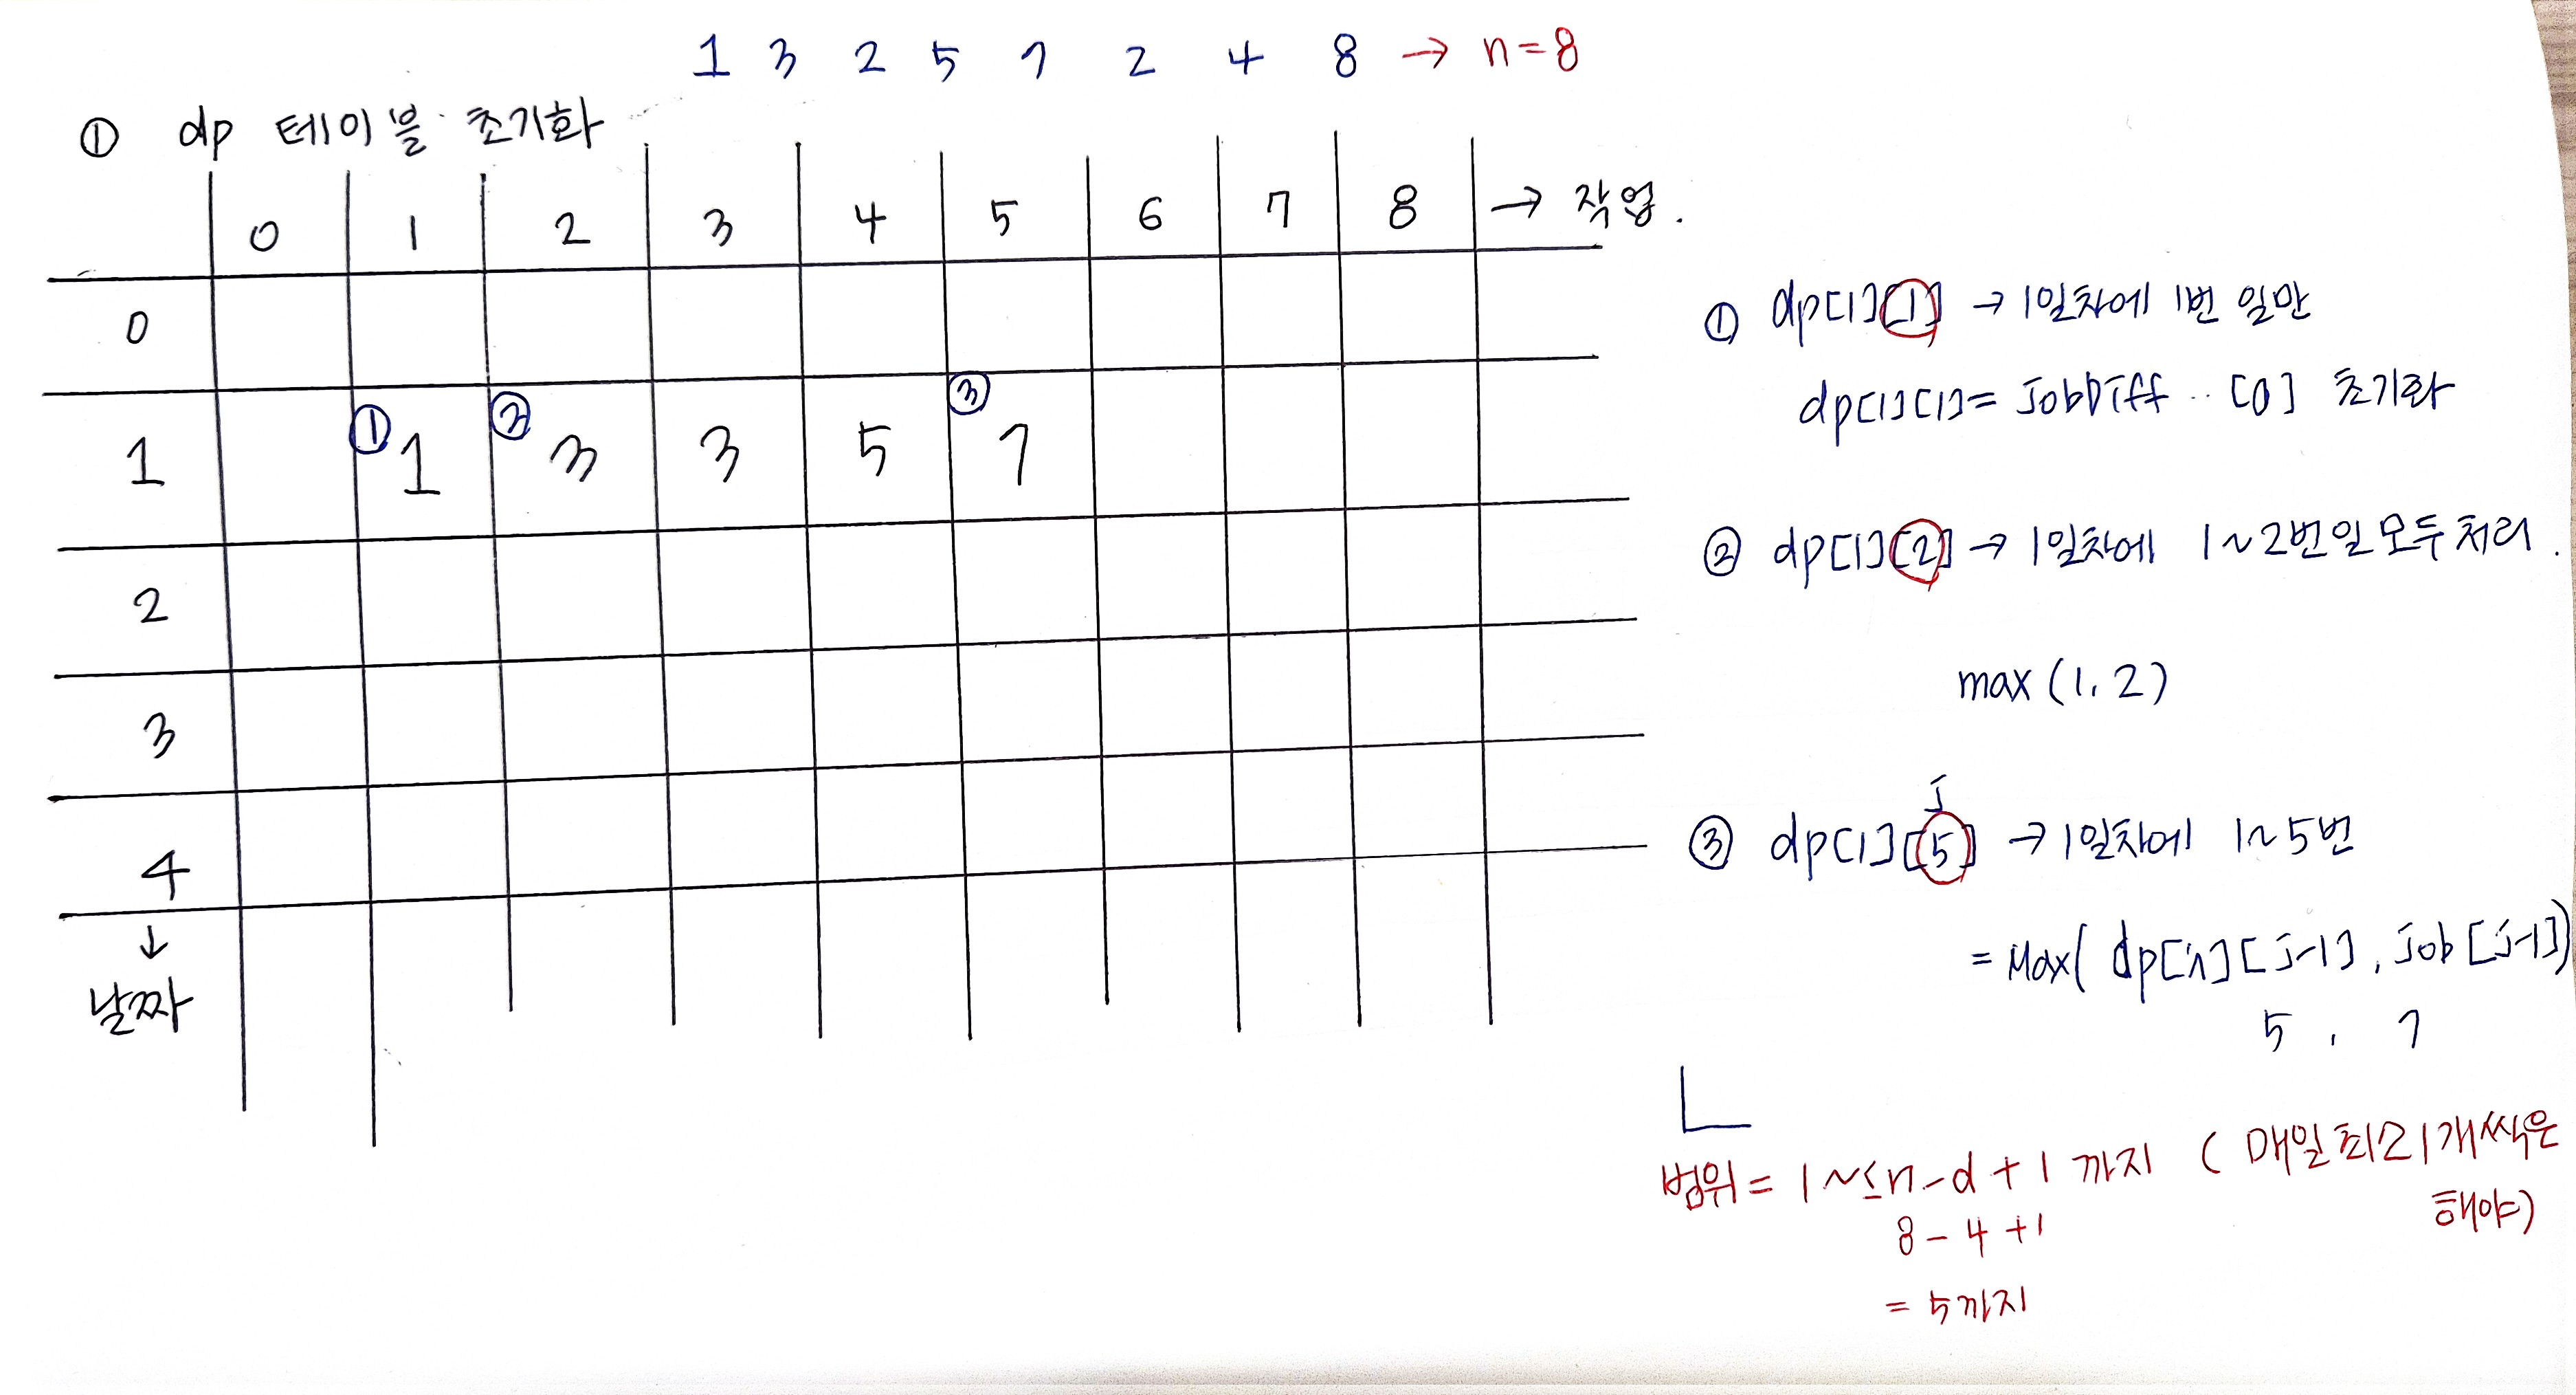 1 3 2 5 7 2 4 8 → n=8
① dp 테이블 초기화
0 1 2 3 4 5 6 7 8 → 작업.
0
1 ① 1 ② 3 3 5 ③ 7
2
3
4
↓
날짜
① dp[1][1] → 1일차에 1번 일만
dp[1][1]= JobDiff .. [0] 초기화
② dp[1][2] → 1일차에 1~2번일 모두 처리.
max (1, 2)
j
③ dp[1][5] → 1일차에 1~5번
= Max( dp[1][j-1], job[j-1])
5 , 7
범위= 1~≤n-d+1 까지 ( 매일 최소 1개씩은
해야)
8-4+1
= 5까지